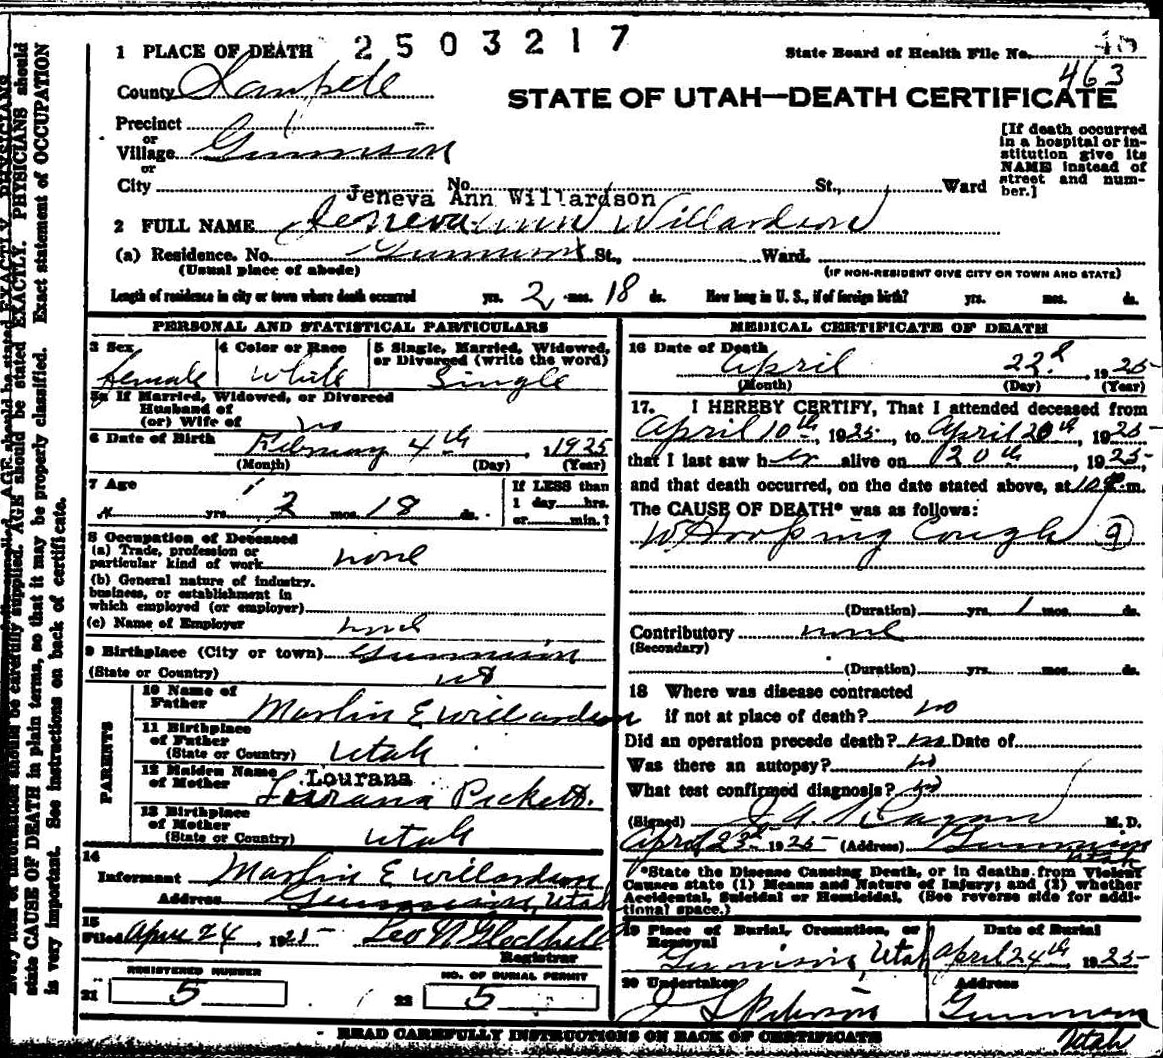 1 PLACE OF DEATH 2503217
State Board of Health File No.
463
County Sanpete
STATE OF UTAH—DEATH CERTIFICATE
Precinct
or
Village Gunnison
or
City No. St., Ward
[If death occurred
in a hospital or in-
stitution give its
NAME instead of
street and num-
ber.]
Jeneva Ann Willardson
2 FULL NAME Jeneva Ann Willardson
(a) Residence. No. Gunnison St., Ward.
(Usual place of abode) (IF NON-RESIDENT GIVE CITY OR TOWN AND STATE)
Length of residence in city or town where death occurred yrs. 2 mos. 18 ds. How long in U. S., if of foreign birth? yrs. mos. ds.
PERSONAL AND STATISTICAL PARTICULARS
3 Sex
female
4 Color or Race
White
5 Single, Married, Widowed,
or Divorced (write the word)
Single
5a If Married, Widowed, or Divorced
Husband of
(or) Wife of no
6 Date of Birth February 4th, 1925
(Month) (Day) (Year)
7 Age
yrs. 2 mos. 18 ds.
If LESS than
1 day hrs.
or min.?
8 Occupation of Deceased
(a) Trade, profession or
particular kind of work none
(b) General nature of industry.
business, or establishment in
which employed (or employer)
(c) Name of Employer none
9 Birthplace (City or town) Gunnison
(State or Country)
PARENTS
10 Name of
Father Marlin E Willardson
11 Birthplace
of Father
(State or Country) Utah
12 Maiden Name
of Mother
Lourana
Lourana Pickett.
13 Birthplace
of Mother
(State or Country) Utah
14
Informant Marlin E Willardson
Address Gunnison, Utah
15
Filed April 24, 1925 Leo N Gledhill
Registrar
REGISTERED NUMBER
21 5
NO. OF BURIAL PERMIT
22 5
MEDICAL CERTIFICATE OF DEATH
16 Date of Death
April 22d 1925
(Month) (Day) (Year)
17. I HEREBY CERTIFY, That I attended deceased from
April 10th, 1925, to April 20th, 1925
that I last saw her alive on 20th, 1925
and that death occurred, on the date stated above, at 10 P.m.
The CAUSE OF DEATH* was as follows:
Whooping Cough 9
(Duration) yrs. 1 mos. ds.
Contributory none
(Secondary)
(Duration) yrs. mos. ds.
18 Where was disease contracted
if not at place of death? no
Did an operation precede death? no Date of
Was there an autopsy? no
What test confirmed diagnosis? no
(Signed) M. D.
April 23rd 1925 (Address) Gunnison
Utah
*State the Disease Causing Death, or in deaths from Violent
Causes state (1) Means and Nature of Injury; and (2) whether
Accidental, Suicidal or Homicidal. (See reverse side for addi-
tional space.)
19 Place of Burial, Cremation, or
Removal
Gunnison, Utah
Date of Burial
April 24th, 1925
20 Undertaker
Address
Gunnison
Utah
READ CAREFULLY INSTRUCTIONS ON BACK OF CERTIFICATE
state CAUSE OF DEATH in plain terms, so that it may be properly classified. Exact statement of OCCUPATION
is very important. See instructions on back of certificate.